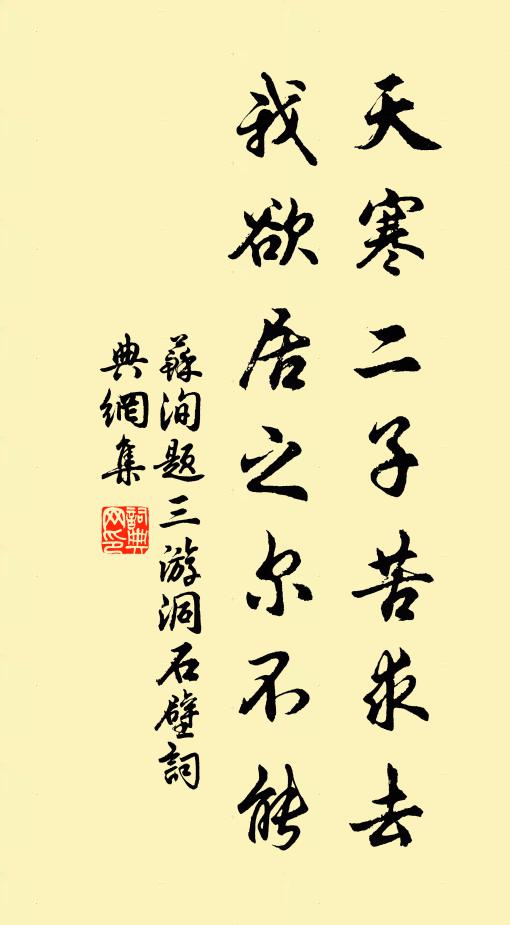 天寒二子苦求去
我欲居之尔不能
蘇洵题三游洞石壁詞
典網集
詞典
网印